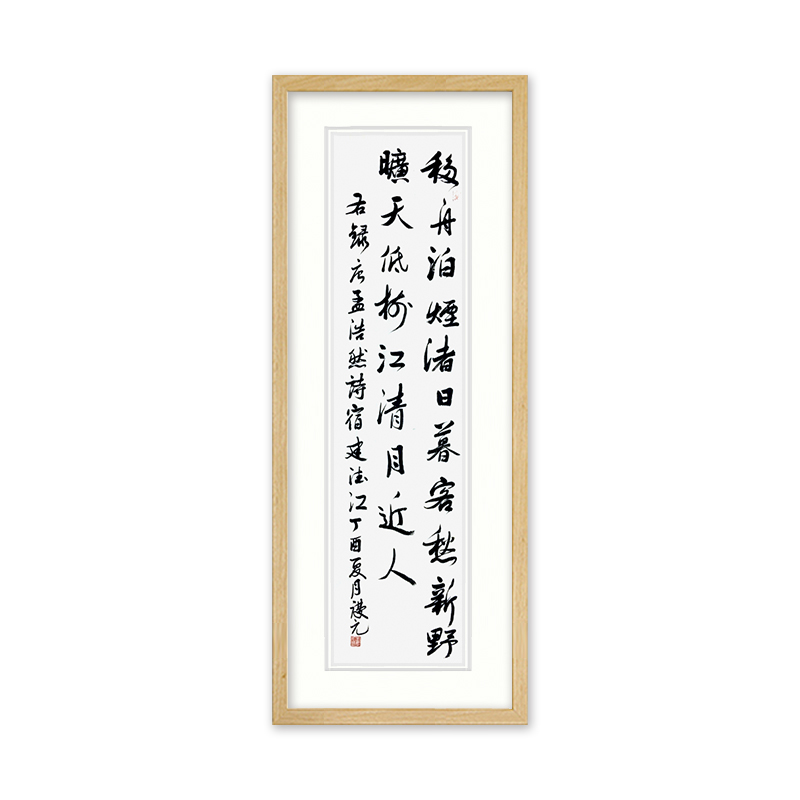 移舟泊煙渚日暮客愁新野
曠天低樹江清月近人
右録唐孟浩然詩宿建德江丁酉夏月謙元